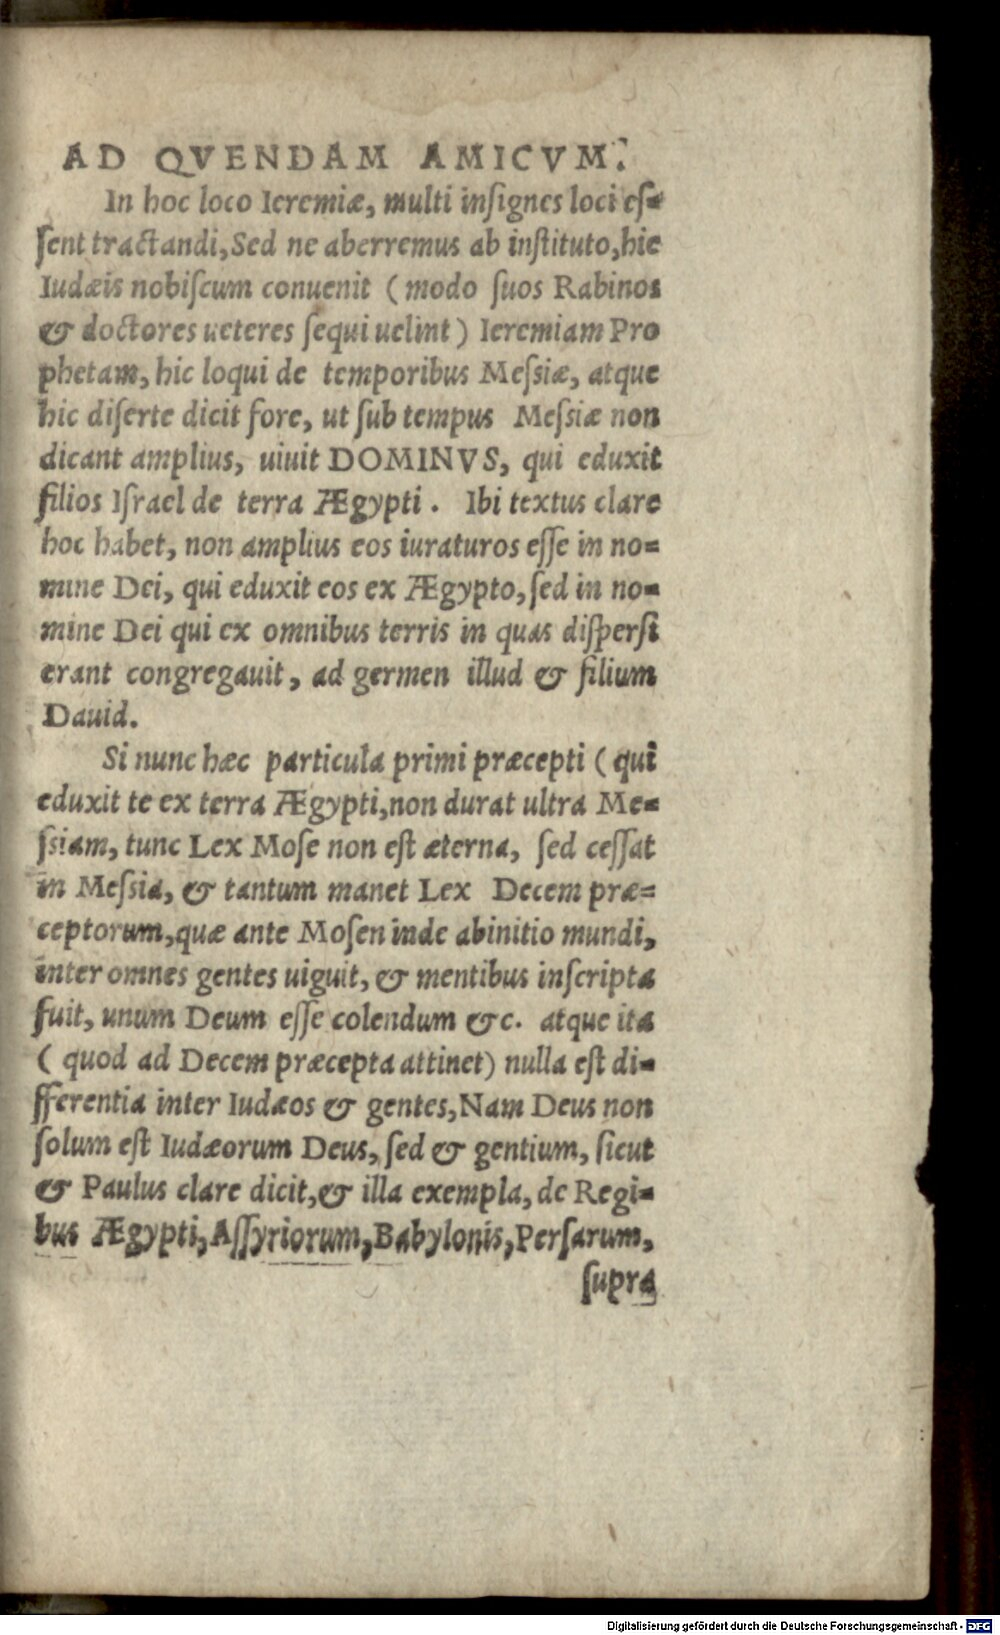 AD QVENDAM AMICVM.
In hoc loco Ieremiæ, multi inſignes loci eſ-
ſent tractandi, Sed ne aberremus ab inſtituto, hic
Iudæis nobiſcum conuenit ( modo ſuos Rabinos
& doctores ueteres ſequi uelint ) Ieremiam Pro
phetam, hic loqui de temporibus Meſsiæ, atque
hic diſerte dicit fore, ut ſub tempus Meſsiæ non
dicant amplius, uiuit DOMINVS, qui eduxit
filios Iſrael de terra Ægypti . Ibi textus clare
hoc habet, non amplius eos iuraturos eſſe in no-
mine Dei, qui eduxit eos ex Ægypto, ſed in no-
mine Dei qui ex omnibus terris in quas diſperſi
erant congregauit, ad germen illud & filium
Dauid.
Si nunc hæc particula primi præcepti ( qui
eduxit te ex terra Ægypti, non durat ultra Me-
ſsiam, tunc Lex Moſe non eſt æterna, ſed ceſſat
in Meſsia, & tantum manet Lex Decem præ-
ceptorum, quæ ante Moſen inde abinitio mundi,
inter omnes gentes uiguit, & mentibus inſcripta
fuit, unum Deum eſſe colendum &c. atque ita
( quod ad Decem præcepta attinet) nulla eſt di-
fferentia inter Iudæos & gentes, Nam Deus non
ſolum eſt Iudæorum Deus, ſed & gentium, ſicut
& Paulus clare dicit, & illa exempla, de Regi-
bus Ægypti, Aſſyriorum, Babylonis, Perſarum,
ſupra
Digitalisierung gefördert durch die Deutsche Forschungsgemeinschaft - DFG